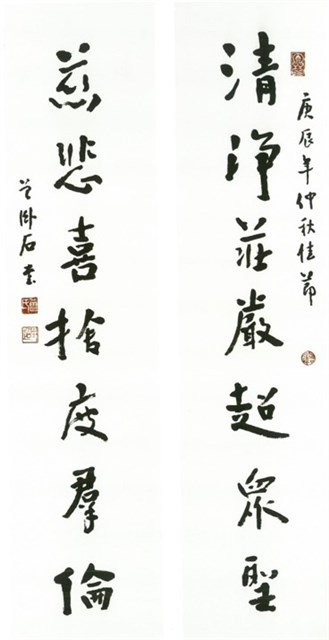 庚辰年仲秋佳節
清淨莊嚴超眾聖
慈悲喜捨度羣倫
卧石書